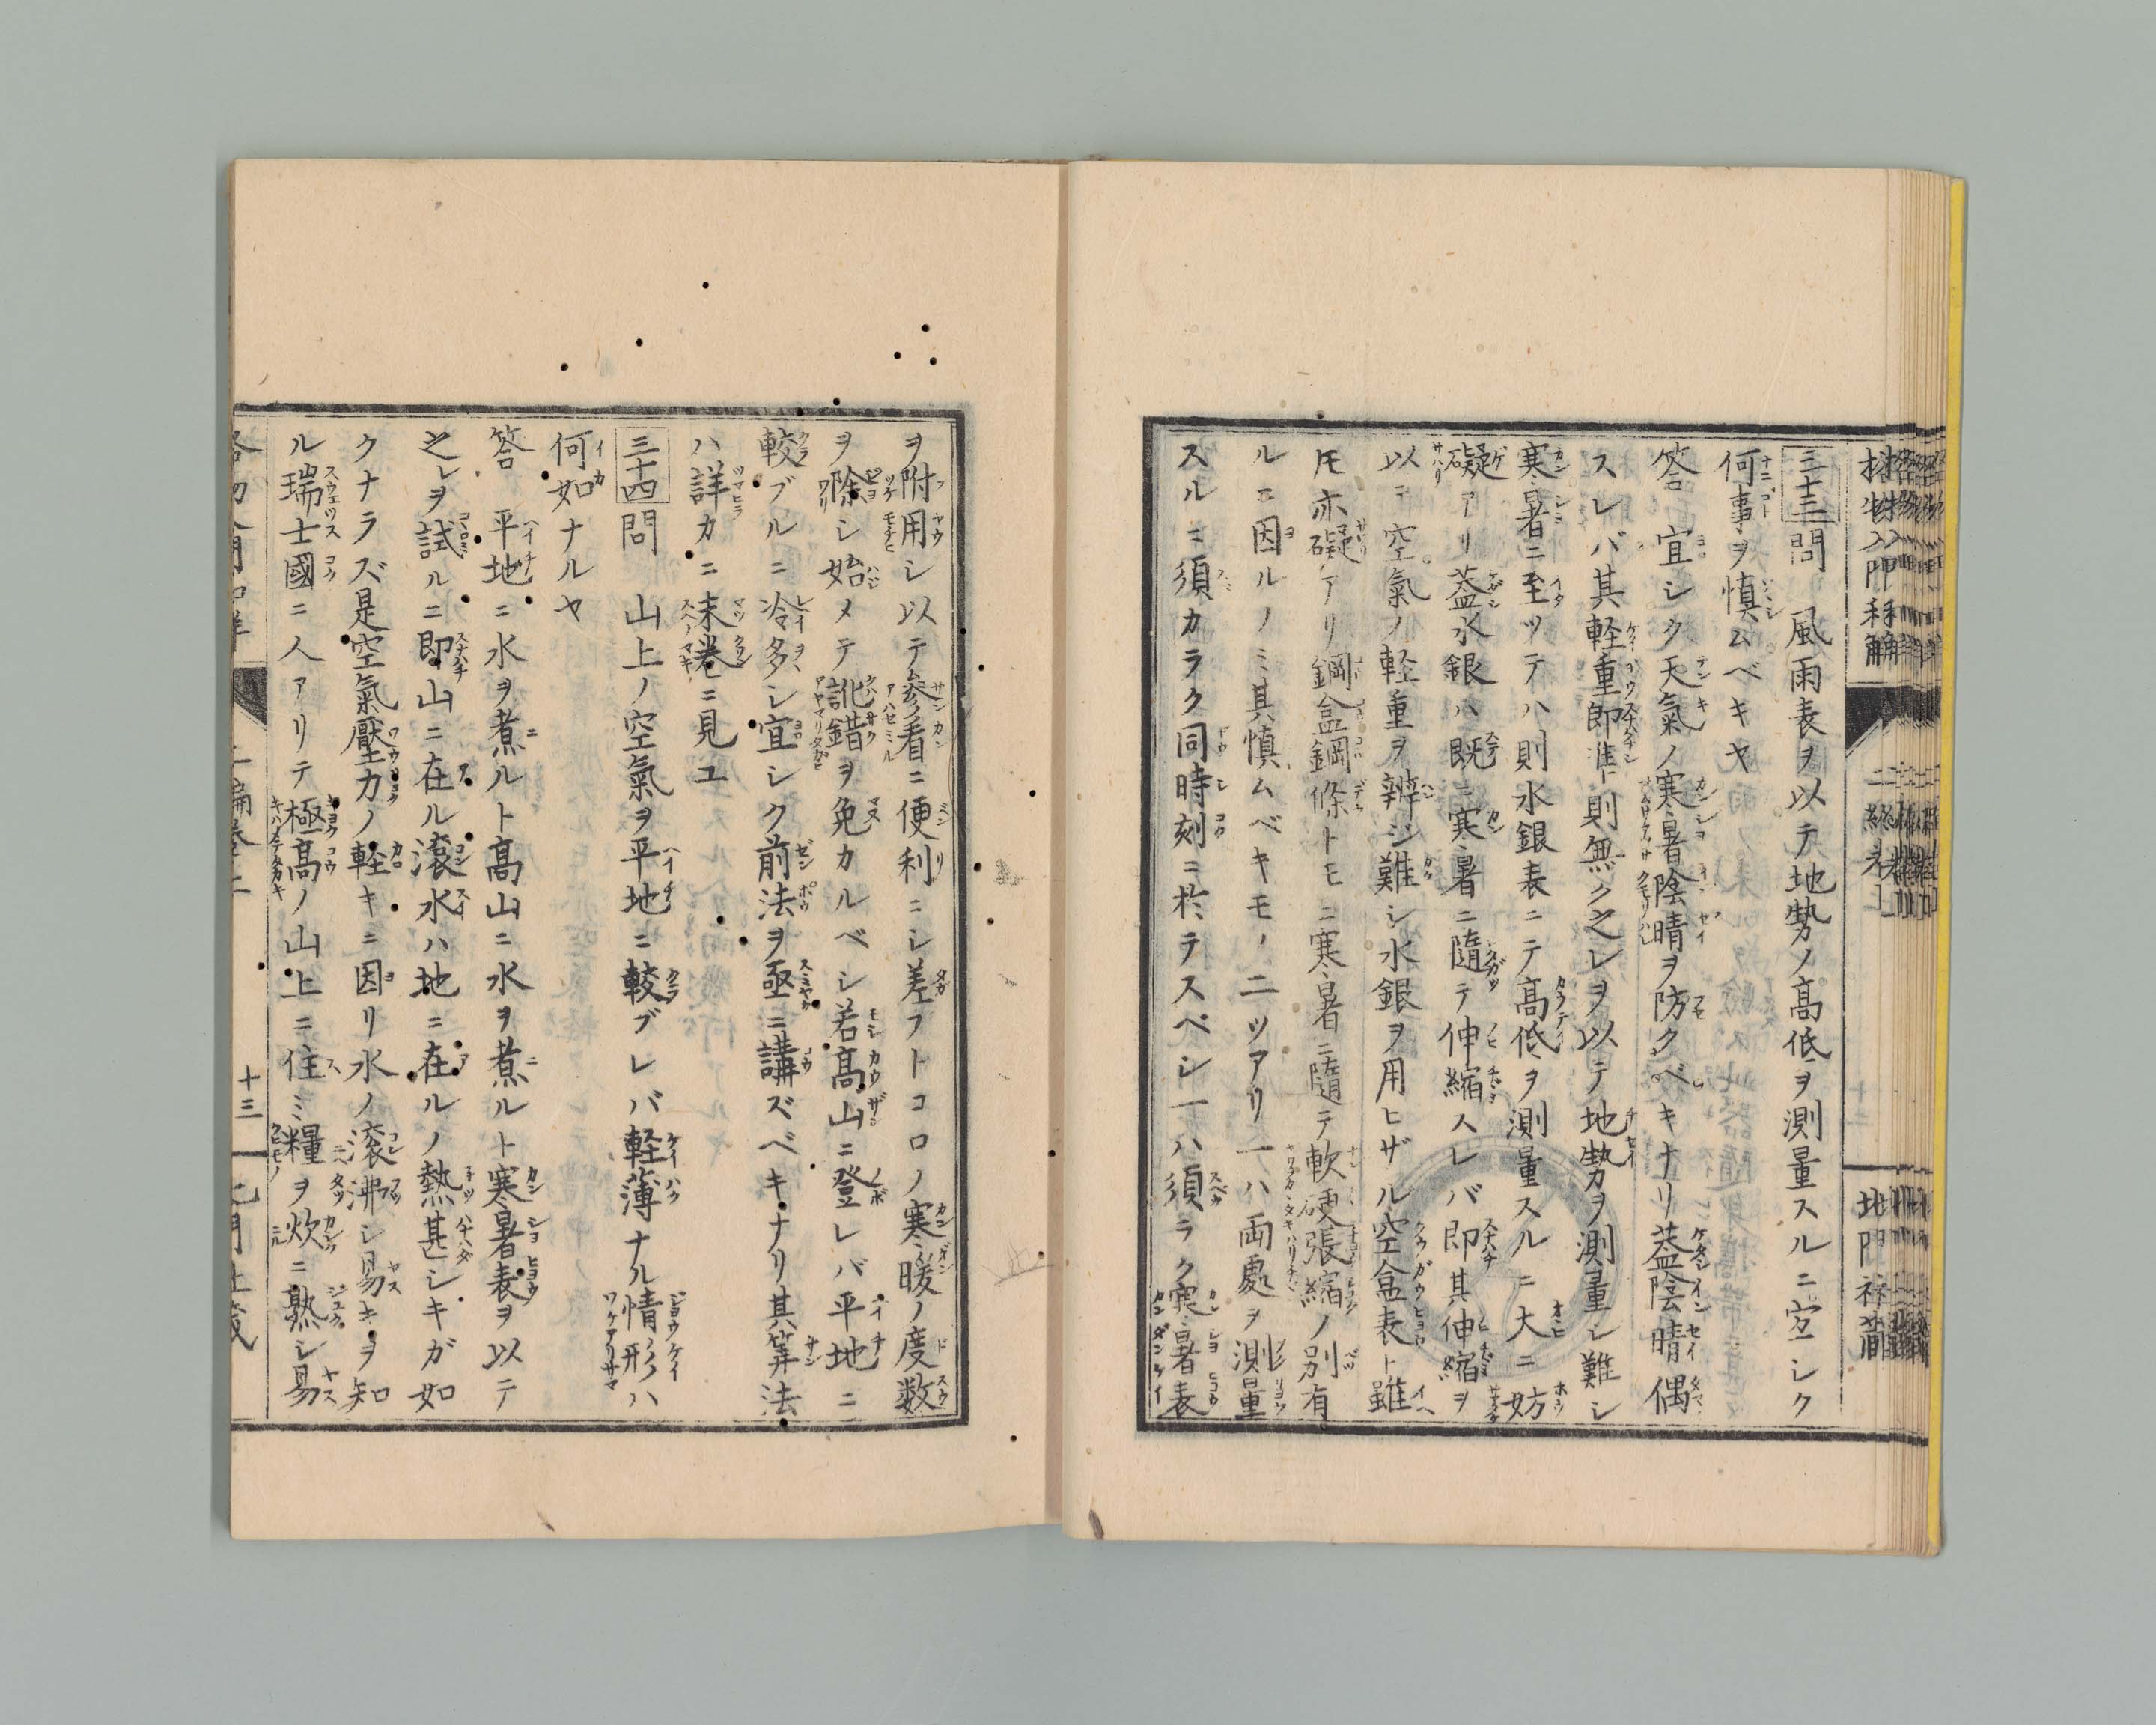 三十三問 風雨表ヲ以テ地勢ノ高低ヲ測量スルニ宜シク
何事ヲ慎ムベキヤ
答 宜シク天氣ノ寒暑陰晴ヲ防クベキナリ蓋陰晴偶
スレバ其軽重即準則無ク之レヲ以テ地勢ヲ測量シ難シ
寒暑ニ至ツテハ則水銀表ニテ高低ヲ測量スルニ大ニ妨
礙アリ蓋水銀ハ既ニ寒暑ニ隨テ伸縮スレバ即其伸縮ヲ
以テ空氣ノ軽重ヲ辨ジ難シ水銀ヲ用ヒザル空盒表ト雖
モ亦礙アリ鋼盒鋼條トモニ寒暑ニ隨テ軟硬張縮ノ別有
ルニ因ルノミ其慎ムベキモノ二ツアリ一ハ両處ヲ測量
スルニ須カラク同時刻ニ於テスベシ一ハ須ラク寒暑表
ヲ附用シ以テ参看ニ便利ニシ差フトコロノ寒暖ノ度数
ヲ除シ始メテ訛錯ヲ免カルベシ若高山ニ登レバ平地ニ
較ブルニ冷多シ宜シク前法ヲ亟ニ講ズベキナリ其筭法
ハ詳カニ末巻ニ見ユ
三十四問 山上ノ空氣ヲ平地ニ較ブレバ軽薄ナル情形ハ
何如ナルヤ
答 平地ニ水ヲ煮ルト高山ニ水ヲ煮ルト寒暑表ヲ以テ
之レヲ試ルニ即山ニ在ル滾水ハ地ニ在ルノ熱甚シキガ如
クナラズ是空氣壓力ノ軽キニ因リ水ノ滾沸シ易キヲ知
ル瑞士國ニ人アリテ極高ノ山上ニ住ミ糧ヲ炊ニ熟シ易
十三